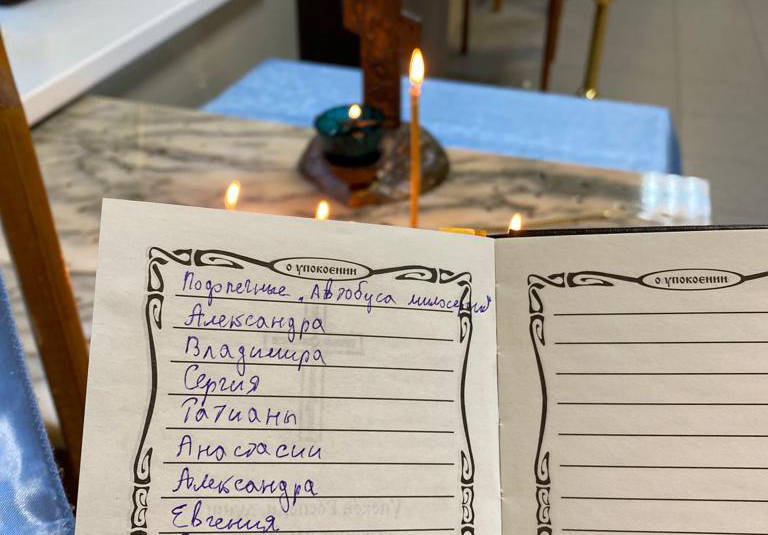 о упокоении
Подопечные „Автобуса милосердия"
Александра
Владимира
Сергия
Татианы
Анастасии
Александра
Евгения
о упокоении